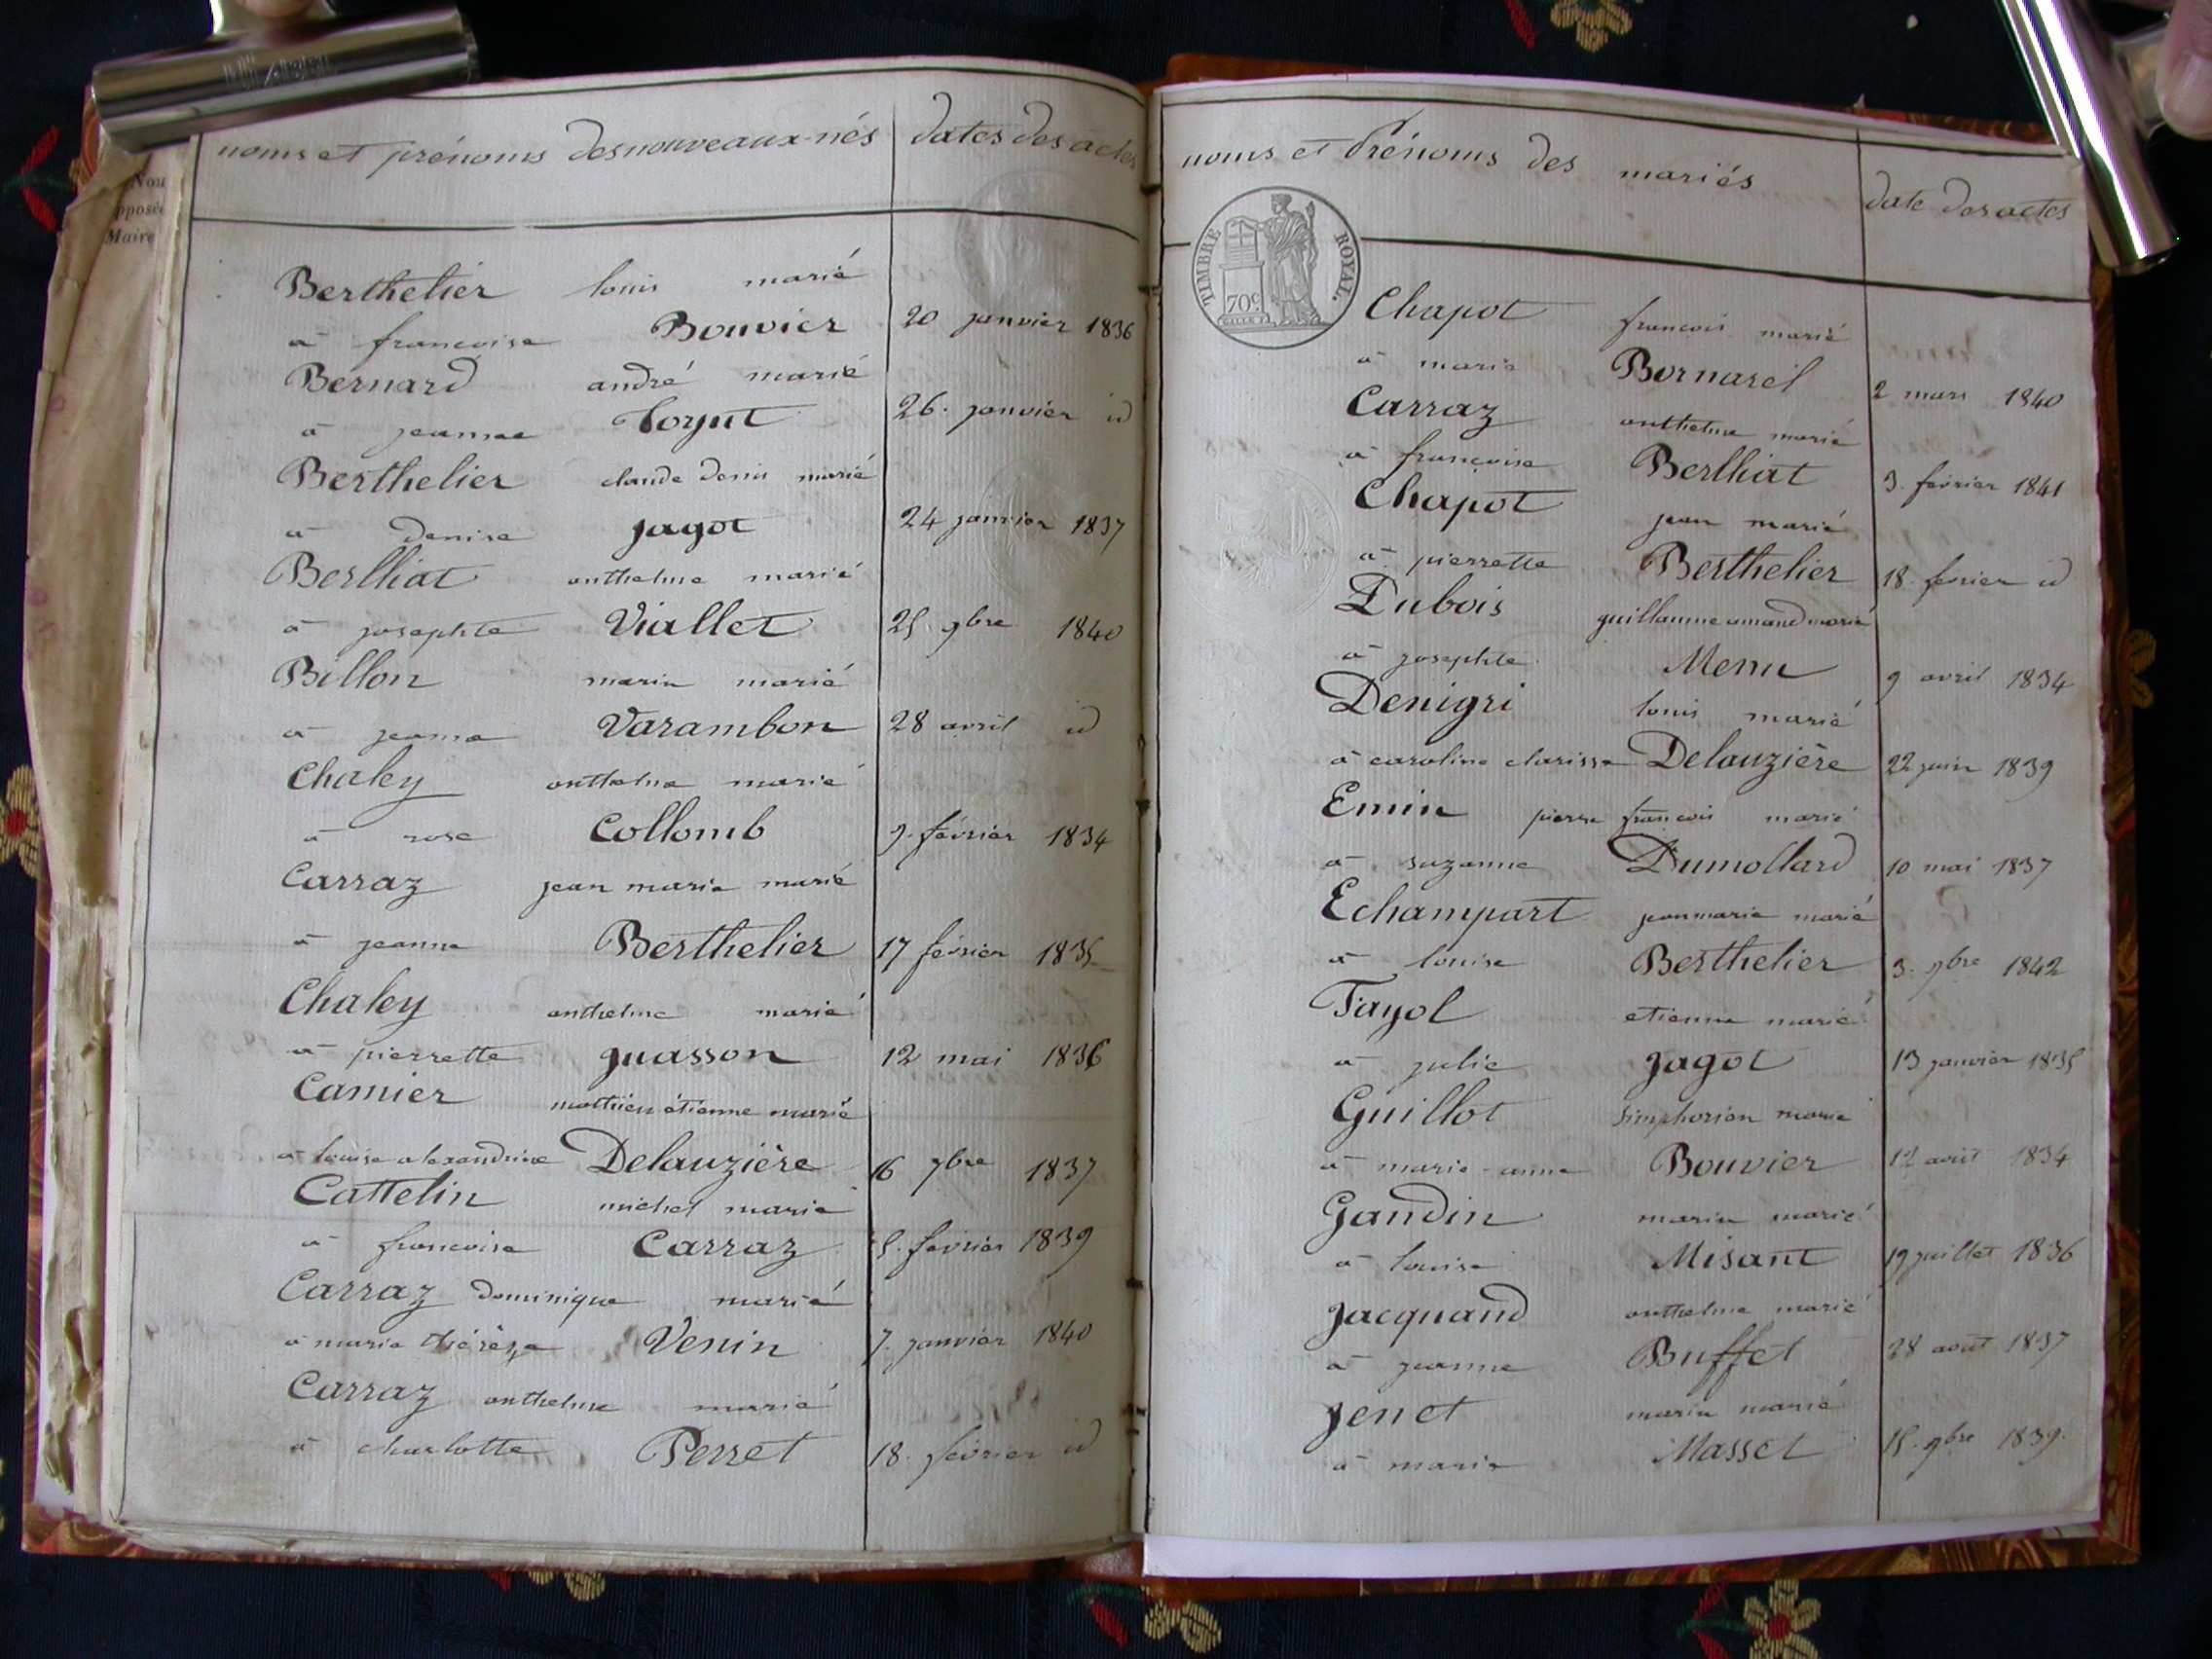 Nou
pposé
Maire
noms et prénoms des nouveaux-nés dates des actes
Berthelier louis marié
à francoise Bouvier 20 janvier 1836
Bernard andré marié
à jeanne 26. janvier id
Berthelier claude denis marié
à denise jagot 24 janvier 1837
Berlhiat anthelme marié
à josephte Viallet 25 9bre 1840
Billon marin marié
à jeanne Varambon 28 avril id
Chaley anthelme marié
à rose Collomb 9. février 1834
Carraz jean marie marié
à jeanne Berthelier 17 février 1835
Chaley anthelme marié
à pierrette juasson 12 mai 1836
Camier mathieu étienne marié
à louise alexandrine Delauzière 16 7bre 1837
Cattelin michel marié
à francoise Carraz 5. février 1839
Carraz dominique marié
à marie thérèse Venin 7. janvier 1840
Carraz anthelme marié
à charlotte Perret 18. février id
noms et Prénoms des mariés date des actes
TIMBRE ROYAL.
70c
Chapot francois marié
à marie Bornarel 2 mars 1840
Carraz anthelme marié
à françoise Berlhiat 3. février 1841
Chapot jean marié
à pierrette Berthelier 18. février id
Dubois guillaume amand marié
à josephte Menu 9 avril 1834
Denigri louis marié
à caroline clarisse Delauzière 22 juin 1839
Emin pierre francois marié
à suzanne Dumollard 10 mai 1837
Echampart jean marie marié
à louise Berthelier 3. 9bre 1842
Fayol etienne marié
à julie jagot 13 janvier 1835
Guillot simphorien marié
à marie-anne Bouvier 12 août 1834
Gandin marin marié
à louise Misant 19 juillet 1836
jacquand anthelme marié
à jeanne Buffet 28 août 1837
jenet marin marié
à marie Masset 15. 9bre 1839.